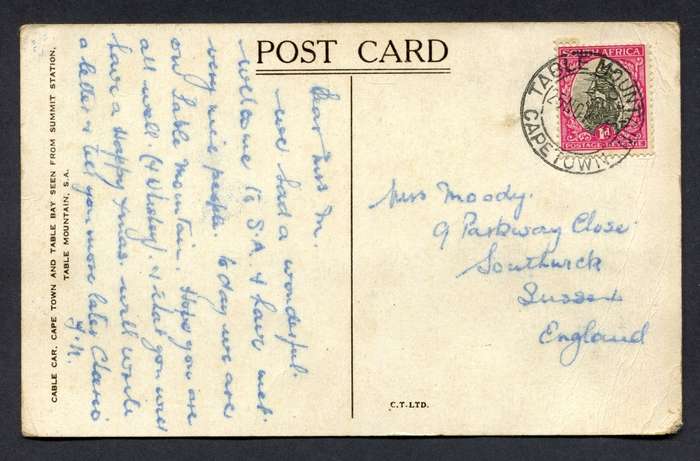 POST CARD
CABLE CAR, CAPE TOWN AND TABLE BAY SEEN FROM SUMMIT STATION,
TABLE MOUNTAIN, S.A.
Dear Mrs M.
we had a wonderful
welcome to S.A & have met
very nice people. today we are
on Table Mountain. Hope you are
all well. (& Whiskey). & that you will
have a Happy Xmas. will write
a letter & tell you more later
J.N.
SOUTH AFRICA
1d
POSTAGE-REVENUE
TABLE MOUNTAIN
CAPETOWN
Mrs Moody.
9 Parkway Close
Southwick
Sussex
England
C.T.LTD.